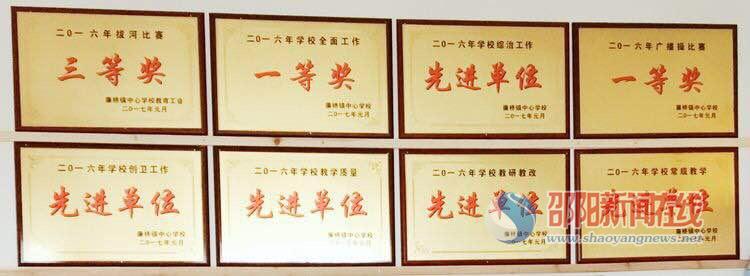 二〇一六年拔河比赛
三等奖
廉桥镇中心学校教育工会
二〇一七年元月
二〇一六年学校全面工作
一等奖
廉桥镇中心学校
二〇一七年元月
二〇一六年学校综治工作
先进单位
廉桥镇中心学校
二〇一七年元月
二〇一六年广播操比赛
一等奖
廉桥镇中心学校
二〇一七年元月
二〇一六年学校创卫工作
先进单位
廉桥镇中心学校
二〇一七年元月
二〇一六年学校教学质量
先进单位
廉桥镇中心学校
二〇一六年学校教研教改
先进单位
廉桥镇中心学校
二〇一七年元月
二〇一六年学校常规教学
单位
邵阳新闻在线
www.shaoyangnews.net